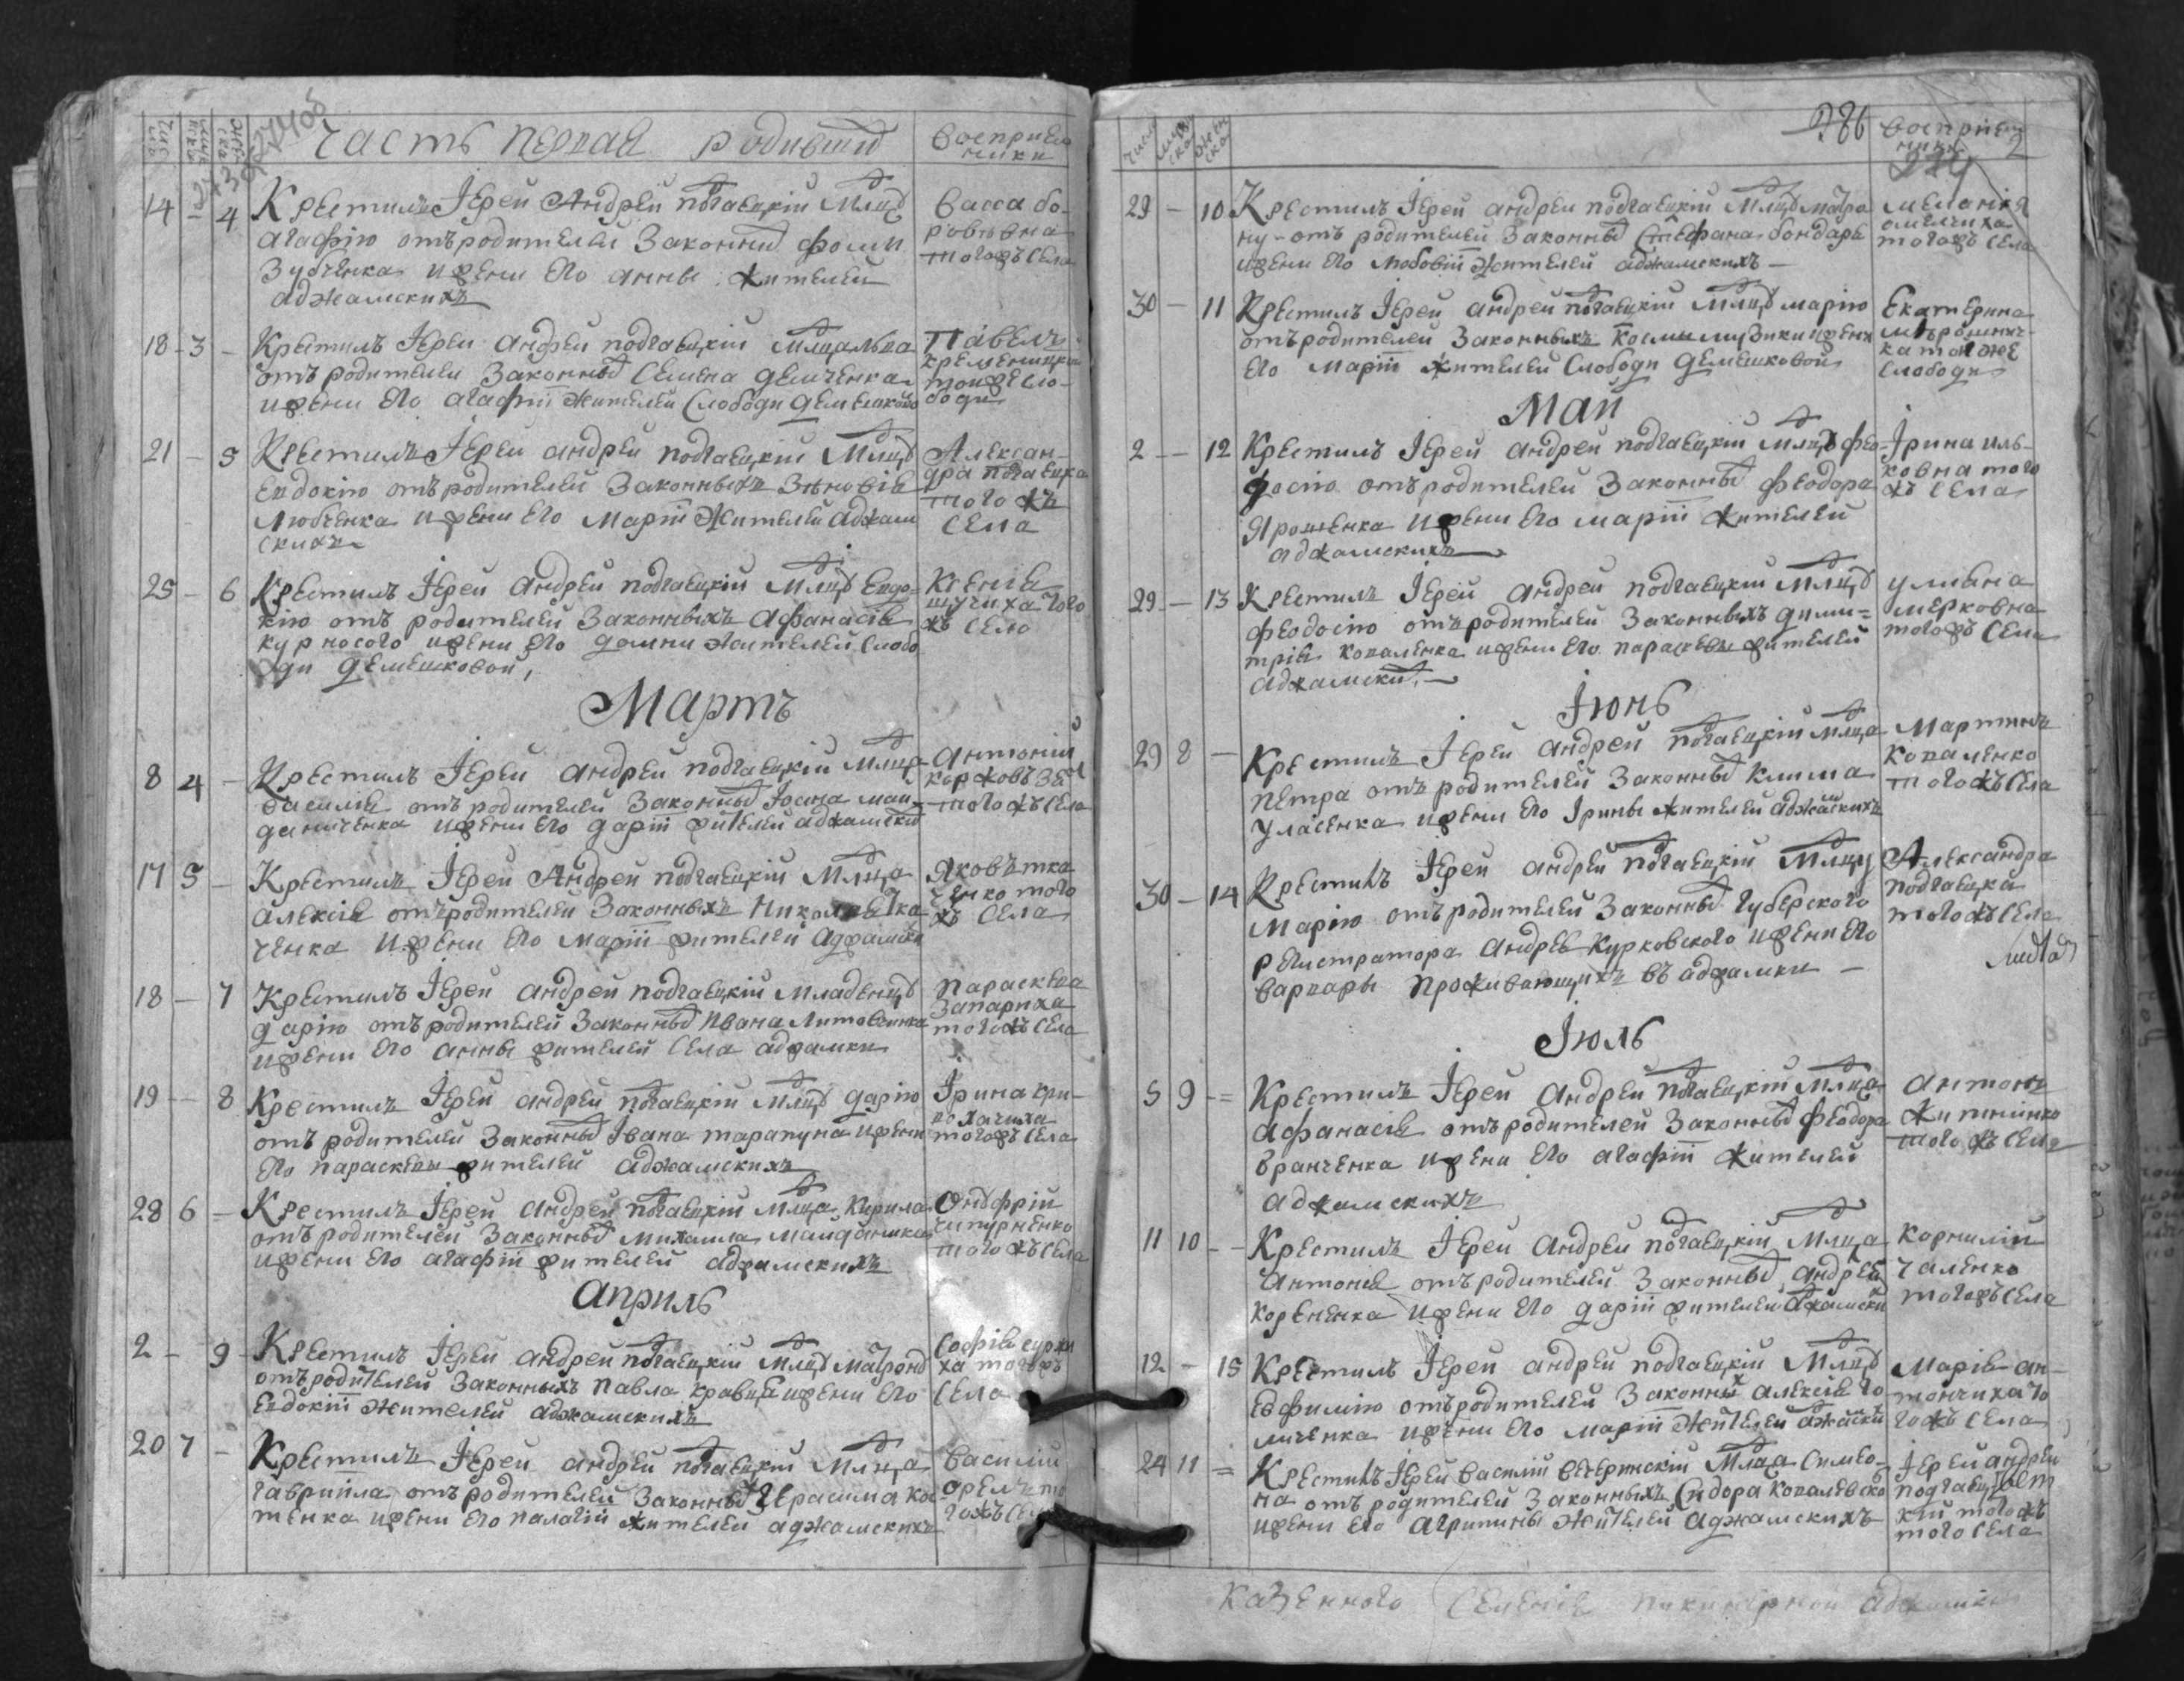 Часть первая родившихъ
Восприемники
14 - 4 Крестилъ Іерей Андрей подгаецкій Млцд
агафію отъ родителей Законныхъ фомы
Зубченка и жены его анны жителей
аджамскихъ
васса бо-
ровъвна
тогожъ села
18 - 3 - Крестилъ Іерей андрей подгаецкій Млца льва
отъ родителей Законныхъ Семена демченка
и жены его агафіи жителей Слободи демешковой
Павелъ
кременицкий
тоижесло-
боди
21 - 5 Крестилъ Іерей андрей подгаецкій Млцд
Евдокію отъ родителей Законныхъ Зѣновіа
Любченка и жены его Маріи Жителей аджам
скихъ
Алексан-
дра подгаецка
того жъ
села
25 - 6 Крестилъ Іерей андрей подгаецкій Млцд Евдо-
кію отъ родителей Законныхъ афанасіа
курносого и жены его домни жителей слобо
ди демешковой,
Ксеніа
того
жъ села
Мартъ
8 4 - Крестилъ Іерей андрей подгаецкій Млца
василіа отъ родителей Законныхъ Іоана май-
даниченка и жены его даріи жителей аджамскихъ
антоній
того жъ села
17 5 - Крестилъ Іерей Андрей подгаецкій Млца
алексіа отъ родителей Законныхъ Николы тка-
ченка и жены его Маріи жителей аджамски
Яковъ тка
ченко того
жъ села
18 - 7 Крестилъ Іерей андрей подгаецкій Младенцд
дарію отъ родителей Законныхъ Ивана Литовченка
и жены его анны жителей села аджамки
Параскева
Запариха
тогожъ села
19 - 8 Крестилъ Іерей андрей подгаецкій Млцд дарію
отъ родителей Законныхъ Івана тарапуна и жены
его параскевы жителей аджамскихъ
Ірина
тогожъ села
28 6 - Крестилъ Іерей андрей подгаецкій Млца Кирила
отъ родителей Законныхъ михаила майданика
и жены его агафіи жителей аджамскихъ
Онуфрій
чипурненко
того жъ села
Априль
2 - 9 Крестилъ Іерей андрей подгаецкій Млцд Матрону
отъ родителей Законныхъ Павла кравца и жены его
Евдокіи жителей аджамскихъ
Софіа
тогожъ
села
20 7 - Крестилъ Іерей андрей подгаецкій Млнца
гавриила отъ родителей Законныхъ Герасима ко-
тенка и жены его палагіи жителей аджамскихъ
василій
орелъ то
гожъ села
286
Восприем
ники
29 - 10 Крестилъ Іерей андрей подгаецкій Млцд матро
ну отъ родителей Законныхъ Стефана бондаря
и жены его любовіи жителей аджамскихъ
меланія
омелчиха
тогожъ села
30 - 11 Крестилъ Іерей андрей подгаецкій Млцд марію
отъ родителей Законныхъ Космы музики и жены
его Маріи жителей Слободи демешковой
Екатерина
мѣрошнич-
ка той же
слободи
Май
2 - 12 Крестилъ Іерей андрей подгаецкій млцд фео
досію отъ родителей Законныхъ феодора
Ярошенка и жены его маріи жителей
аджамскихъ
Ірина иль-
ковна того
жъ села
29 - 13 Крестилъ Іерей андрей подгаецкій Млцд
феодосію отъ родителей Законныхъ дими=
тріа коваленка и жены его параскевы жителей
аджамскихъ
улиана
мерковна
тогожъ села
Іюнь
29 8 - Крестилъ Іерей андрей подгаецкій млца
петра отъ родителей Законныхъ Клима
уласенка и жены его Ірины жителей аджамскихъ
Мартинъ
коваленко
того жъ села
30 - 14 Крестилъ Іерей андрей подгаецкій Млцу
марію отъ родителей Законныхъ Губерского
регистратора андреа Курковского и жены его
варвары проживающихъ въ аджамки
Александра
подгаецка
того жъ села
Іюль
5 9 = Крестилъ Іерей андрей подгаецкій Млца
афанасіа отъ родителей Законныхъ феодора
бранченка и жены его агафіи жителей
аджамскихъ
антонъ
того жъ села
11 10 - Крестилъ Іерей андрей подгаецкій Млца
антоніа отъ родителей Законныхъ андрей
корененка и жены его даріи жителей аджамски
корнилій
галенко
тогожъ села
12 - 15 Крестилъ Іерей андрей подгаецкій Млцд
Евфимію отъ родителей Законныхъ алексіа го
личенка и жены его маріи жителей аджамскихъ
Маріа ан-
тончиха то
гожъ села
24 11 = Крестилъ Іерей василій вечеринскій Млаца Симео-
на отъ родителей Законныхъ Сидора Ковалевско
и жены его агрипины жителей аджамскихъ
Іерей андрей
подгаец
кій того жъ
того села
казенного селеніа пикинерной аджамки